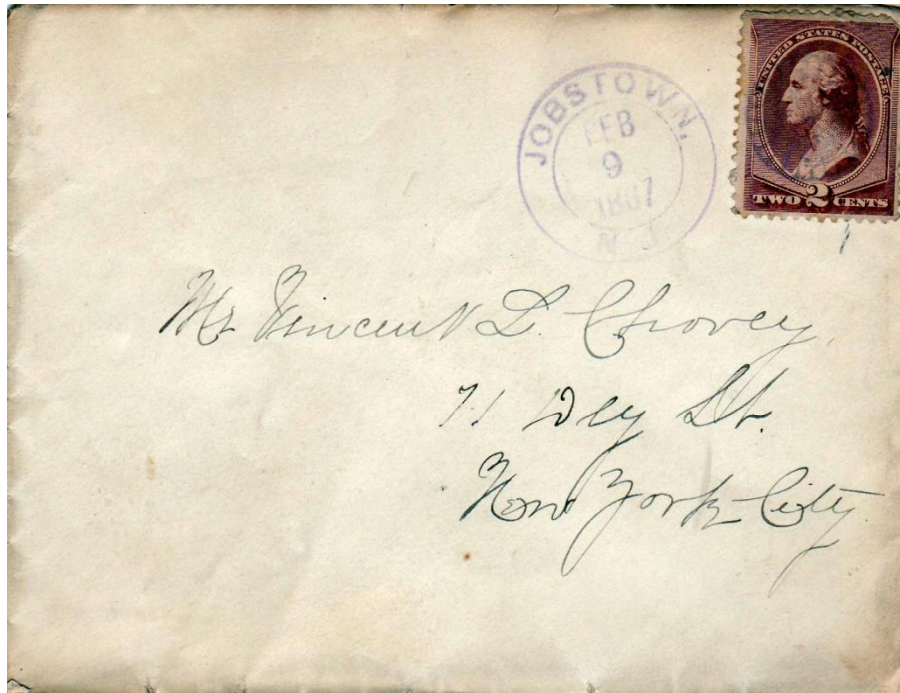 JOBSTOWN,
FEB
9
1887
N.J.
UNITED STATES POSTAGE
TWO 2 CENTS
Mr Vincent L. Chovey
71 Dey St.
New York City